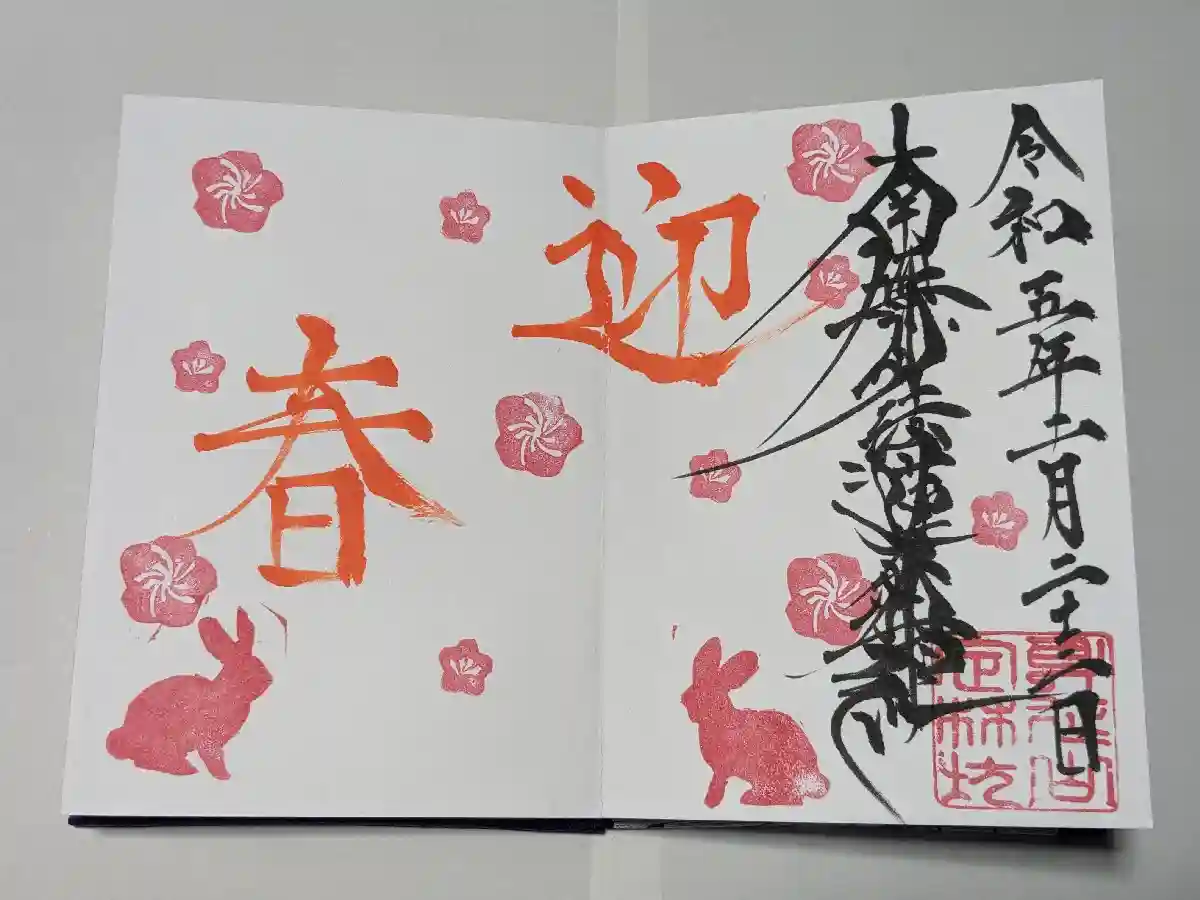 令和五年十二月二十三日
南無妙法蓮華経
迎
春
定林坊